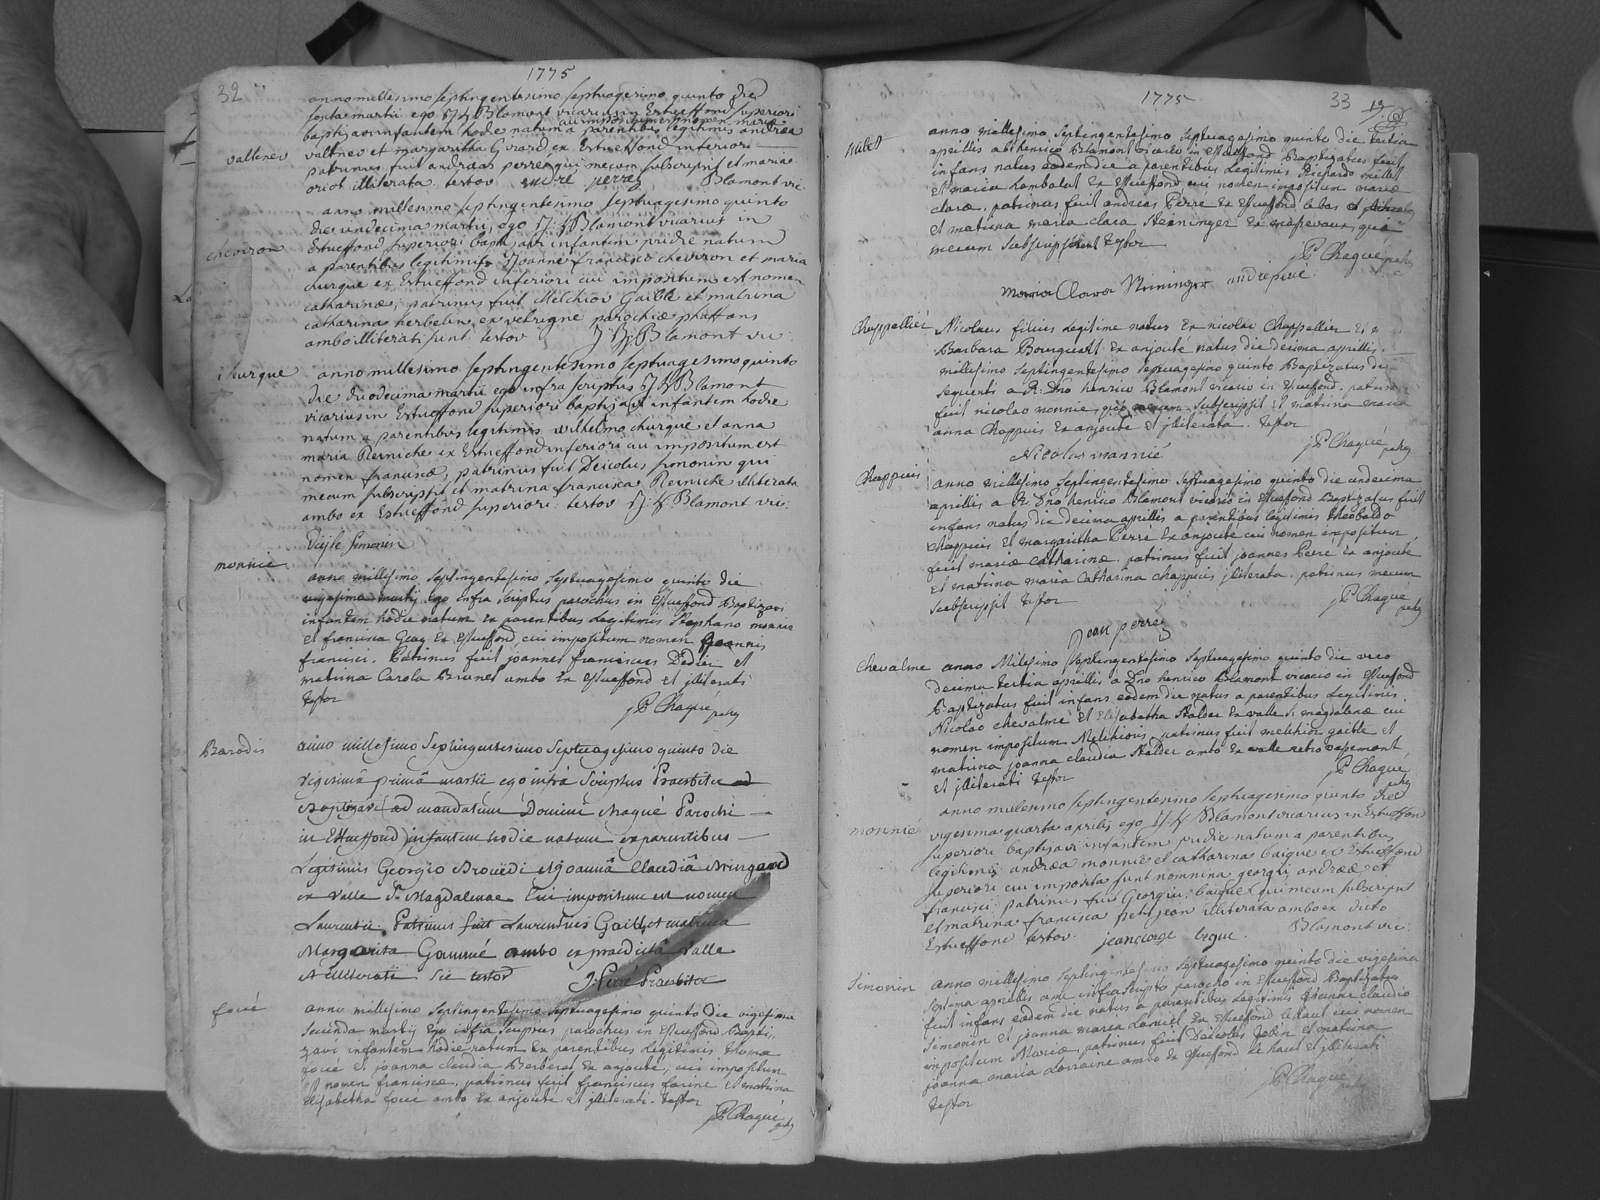 32
1775
valtener
anno millesimo septingentesimo septuagesimo quinto die
sexta martii ego J: H Blamont vicarius in Estueffond superiori
cui impositum est nomen mariæ
baptisavi infantem hodie natum a parentibus legitimis andrea
valtner et margaritha Girard ex Estueffond inferiori
patrinus fuit andreas perre qui mecum subscripsit et maria
oriot illiterata testor andre perré Blamont vic:
cheviron
anno millesimo septingentesimo septuagesimo quinto
die undecima martii ego J: H Blamont vicarius in
Estueffond superiori baptisavi infantem pridie natum
a parentibus legitimis Joanne francisco cheviron et maria
churque ex Estueffond inferiori cui impositum est nomen
catharinæ; patrinus fuit Melchior Gaible et matrina
catharina herbelin ex vetrigne parochiæ phaffans
ambo illiterati sunt testor J: H Blamont vic:
churque
anno millesimo septingentesimo septuagesimo quinto
die duodecima martii ego infra scriptus J: H Blamont
vicarius in Estueffond superiori baptisavi infantem hodie
natum a parentibus legitimis wilhelmo churque et anna
maria Reiniche ex Estueffond inferiori cui impositum est
nomen franciscæ, patrinus fuit Deicolus simonin qui
mecum subscripsit et matrina francisca Reiniche illiterata
ambo ex Estueffond superiori testor J: H Blamont vic:
Diele simonin
monnié
anno millesimo septingentesimo septuagesimo quinto die
vigesima martii Ego infra scriptus parochus in Estueffond Baptizavi
infantem hodie natum ex parentibus legitimis Stephano monnié
et francisca Geay Ex Estueffond, cui impositum nomen Joannis
francisci. Patrinus fuit joannes franciscus Didier et
matrina Carola Brunet ambo Ex Estueffond et jlliterati
testor
JP Chaqué
Barodis
anno millesimo septingentesimo septuagesimo quinto die
vigesimâ primâ martii ego infrà scriptus Præsbiter ad
Baptizavi (ad mandatum Domini Chaqué Parochi
in Estueffond) infantem hodie natum ex parentibus
Legitimis Georgio Brouëdi et Joannâ Claudiâ
ex Valle St Magdalenae Cui impositum est nomen
Laurentii. Patrinus fuit Laurentius et matrina
Margarita ambo ex prædictâ Valle
et illiterati sic testor J: Præsbiter
foué
anno millesimo septingentesimo septuagesimo quinto die vigesima
secunda martij Ego infra scriptus parochus in Estueffond Bapti,,
zavi infantem hodie natum Ex parentibus legitimis thoma
foué et joanna claudia Berberat Ex anjouté, cui impositum
est nomen franciscæ, patrinus fuit franciscus farine et matrina
elisabetha foué ambo Ex anjouté et jlliterati. testor
JP Chaqué
1775
33
Millet
anno millesimo septingentesimo septuagesimo quinto die tertia
aprilis ab henrico Blamont vicario in Estueffond Baptizatus fuit
infans natus eodem die a parentibus legitimis Richardo millet
et maria Lombalet Ex Estueffond cui nomen impositum mariæ
claræ, patrinus fuit andreas Perré Ex Estueffond le bas
et matrina maria clara Steininger Ex masevaux, qui
mecum subscripserunt testor
JP Chaqué
Maria Clara Steininger andre perré
Chappellier
Nicolaus filius legitime natus Ex nicolao Chappellier et
Barbara Bourquart Ex anjouté natus die decima aprillis
millesimo septingentesimo septuagesimo quinto Baptizatus die
sequenti a R: Dno henrico Blamont vicario in Estueffond. patrinus
fuit nicolao monnie, qui mecum subscripsit et matrina maria
anna Chappuis Ex anjouté et jlliterata. testor
JP Chaqué
Nicolas monnié
Chappuis
anno millesimo septingentesimo septuagesimo quinto die undecima
aprillis a R: Dno henrico Blamont vicario in Estueffond Baptizatus fuit
infans natus die decima aprillis a parentibus legitimis theobaldo
chappuis et margaritha Perré Ex anjouté cui nomen impositum
fuit mariæ Catharinæ. patrinus fuit joannes Perré Ex anjouté
et matrina maria Catharina chappuis jlliterata. patrinus mecum
subscripsit testor
JP Chaqué
Jean perrez
Chevalme
anno Milesimo septingentesimo septuagesimo quinto die vero
decima tertia aprillis a Dno henrico Blamont vicario in Estueffond
Baptizatus fuit infans eodem die natus a parentibus legitimis
Nicolao chevalmé et Elisabetha Halder Ex valle S. magdalenæ cui
nomen impositum Melchioris patrinus fuit melchior gaible et
matrina joanna claudia Halder ambo Ex valle retro vassemont
et jlliterati testor
JP Chaqué
monnié
anno millesimo septingentesimo septuagesimo quinto die
vigesima quarta aprilis ego J: H Blamont vicarius in Estueffond
superiori baptisavi infantem pridie natum a parentibus
legitimis andrea monnie et catharina baique ex Estueffond
superiori cui imposita sunt nomina georgii andreæ et
francisci. patrinus fuit Georgius baique qui mecum subscripsit
et matrina francisca petitjean illiterata ambo ex dicto
Estueffond testor. jean Blamont vic:
Simonin
anno millesimo septingentesimo septuagesimo quinto die vigesima
septima aprillis a me infra scripto parocho in Estueffond Baptizatus
fuit infans eodem die natus a parentibus legitimis joanne claudio
simonin et joanna maria Ex Estueffond le haut cui nomen
impositum Mariæ, patrinus fuit Deicolus et matrina
joanna maria Lorraine ambo Ex Estueffond le haut et jlliterati
testor
JP Chaqué